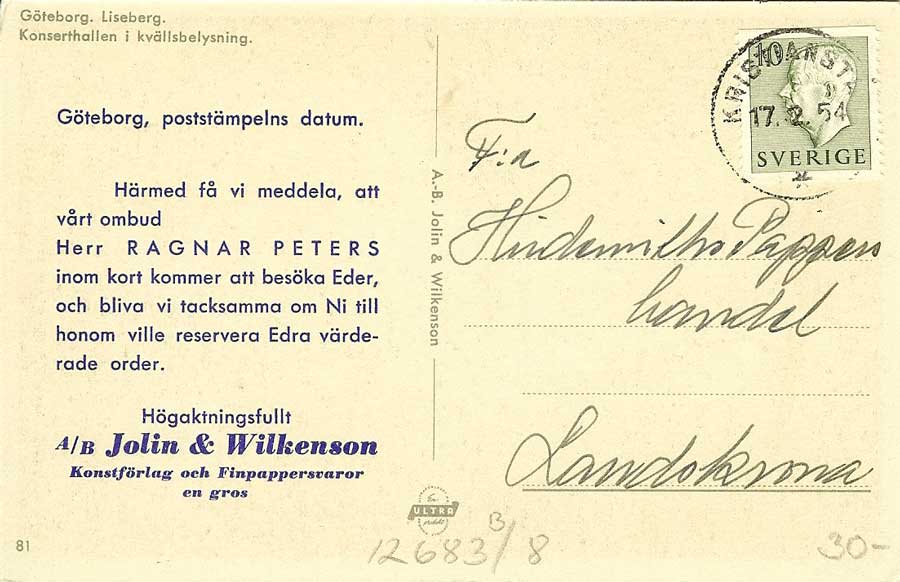 Göteborg. Liseberg.
Konserthallen i kvällsbelysning.
Göteborg, poststämpelns datum.
Härmed få vi meddela, att
vårt ombud
Herr RAGNAR PETERS
inom kort kommer att besöka Eder,
och bliva vi tacksamma om Ni till
honom ville reservera Edra värde-
rade order.
Högaktningsfullt
A/B Jolin & Wilkenson
Konstförlag och Finpappersvaror
en gros
81
A.-B. Jolin & Wilkenson
10
SVERIGE
KRISTIANST
17. 2. 54
F:a
Pappers
handel
Landskrona
En
ULTRA
12683 B/8
30-